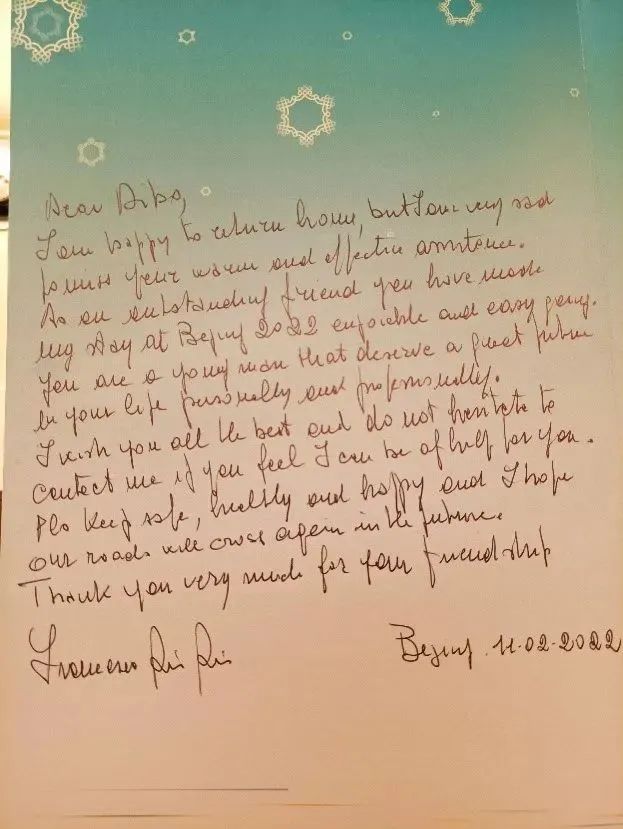 Dear
I am happy to return home, but I am very sad
to miss your warm and effective assistence.
As an outstanding friend you have made
my stay at Bejing 2022 enjoiable and easy going.
You are a young man that deserve a great future
in your life personally and professionally.
I wish you all the best and do not hesitate to
contact me if you feel I can be of help for you.
Pls Keep safe, healthy and happy and I hope
our roads will cross again in the future.
Thank you very much for your friendship
Francesco
Bejing 11-02-2022